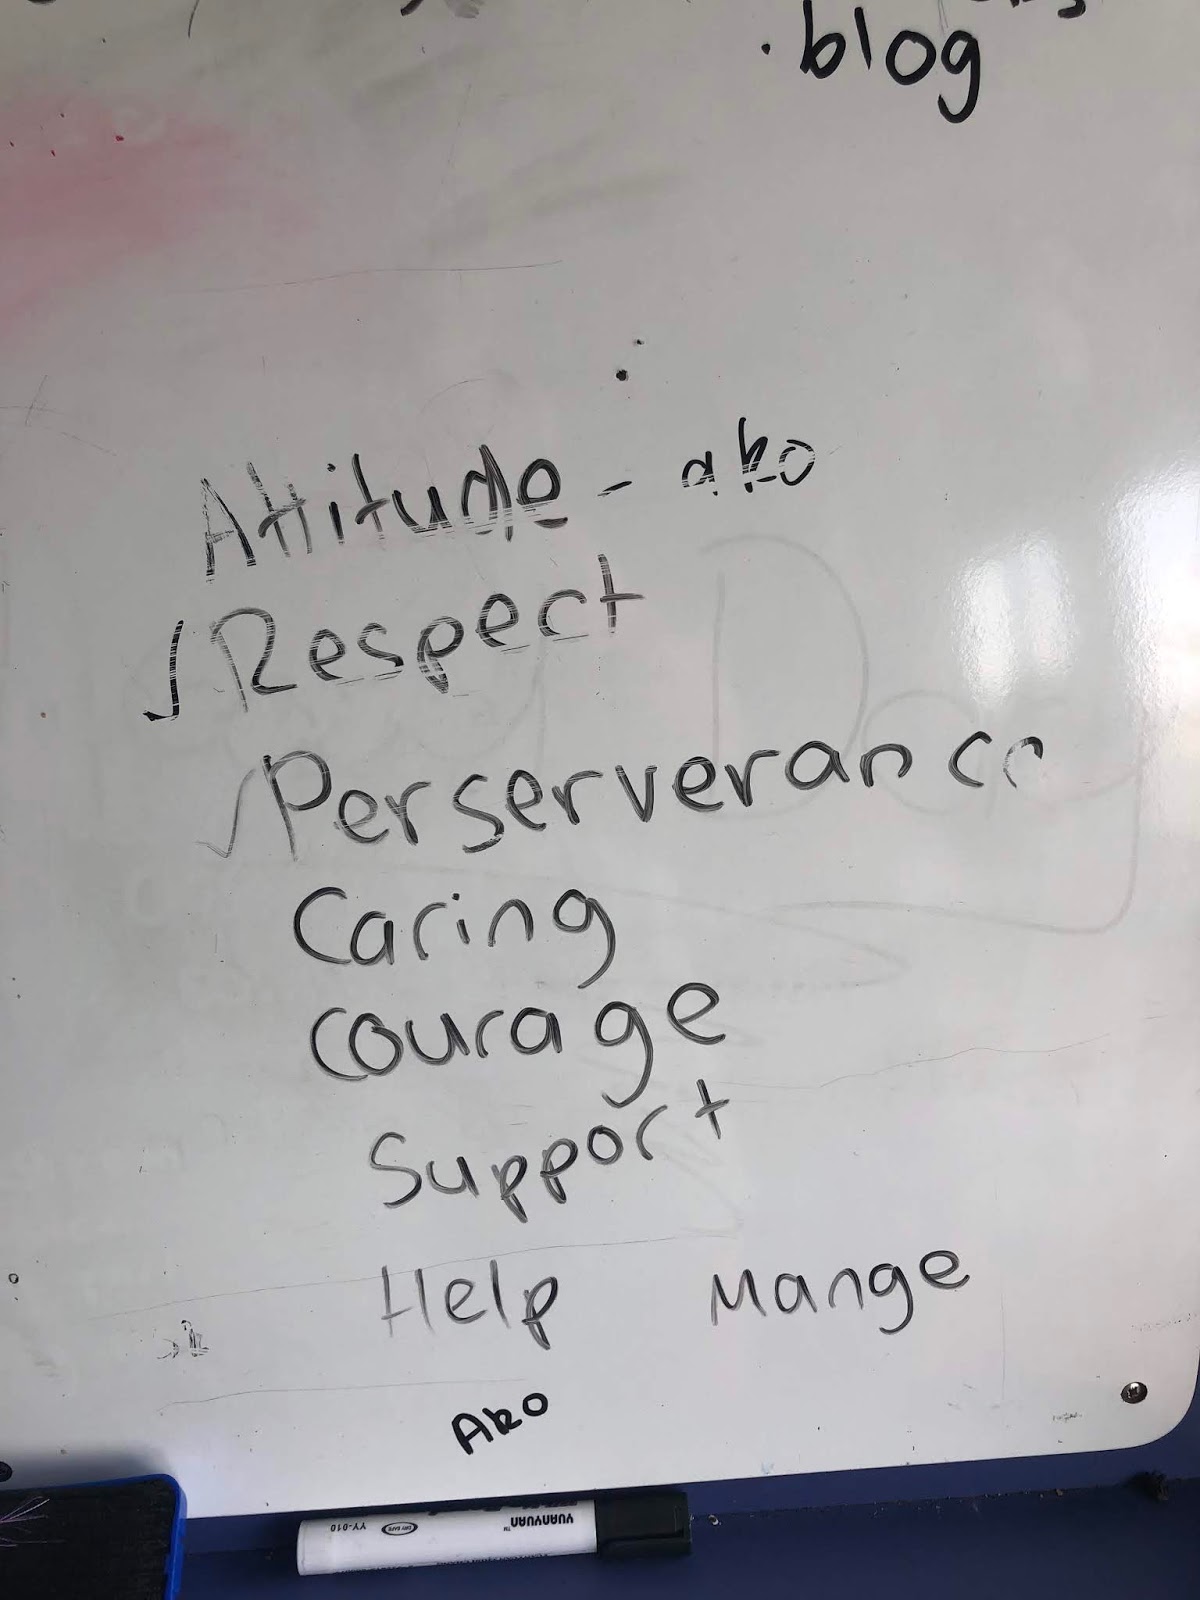 . blog
Attitude - ako
✓ Respect
✓ Perserverance
Caring
Courage
Support
Help Mange
Ako
YUANYUAN™
DRY SAFE
YY-010